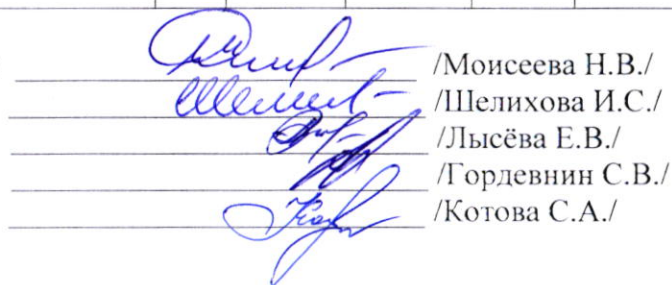 /Моисеева Н.В./
/Шелихова И.С./
/Лысёва Е.В./
/Гордевнин С.В./
/Котова С.А./